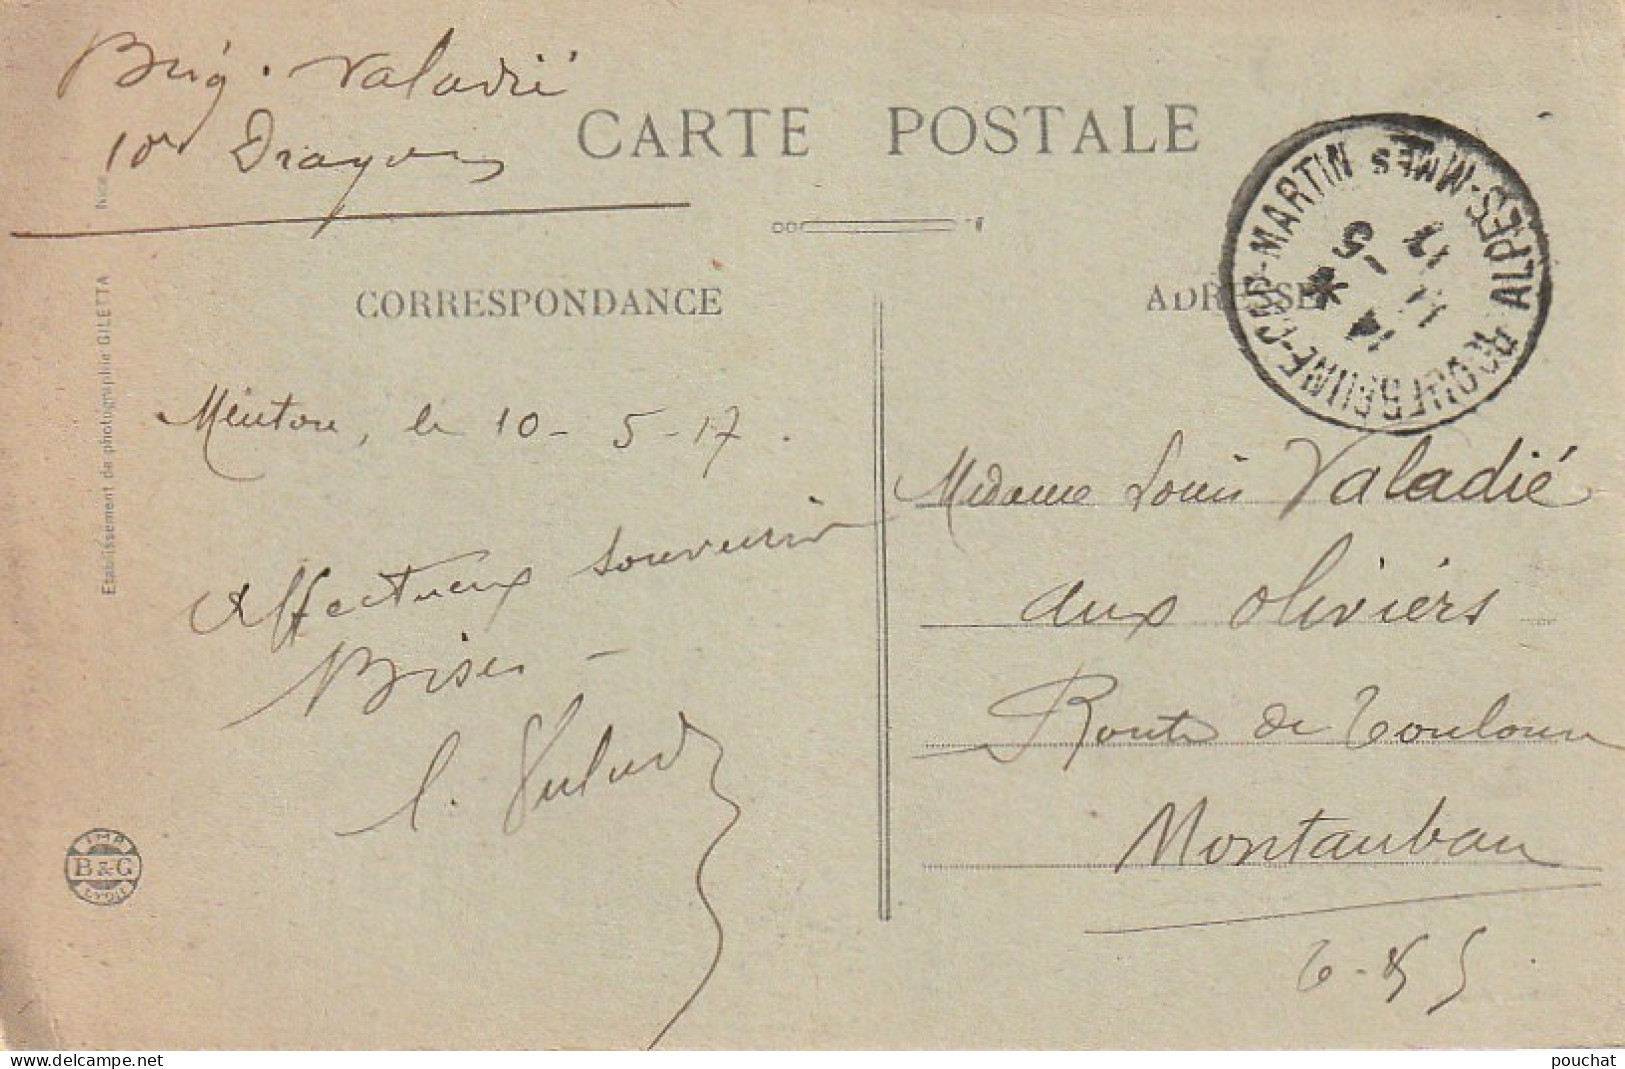 Brig. Valadié
10e Dragons
CARTE POSTALE
CORRESPONDANCE
ADRESSE
ROQUEBRUNE-CAP-MARTIN ALPES-MMES
14
11 -5
17
Menton, le 10-5-17.
Affectueux souvenir
Bises -
L. Valad
Madame Louis Valadié
aux oliviers
Route de Toulouse
Montauban
T-&-
Etablissement de photographie GILETTA
IMP
B & G
LYON
pouchat